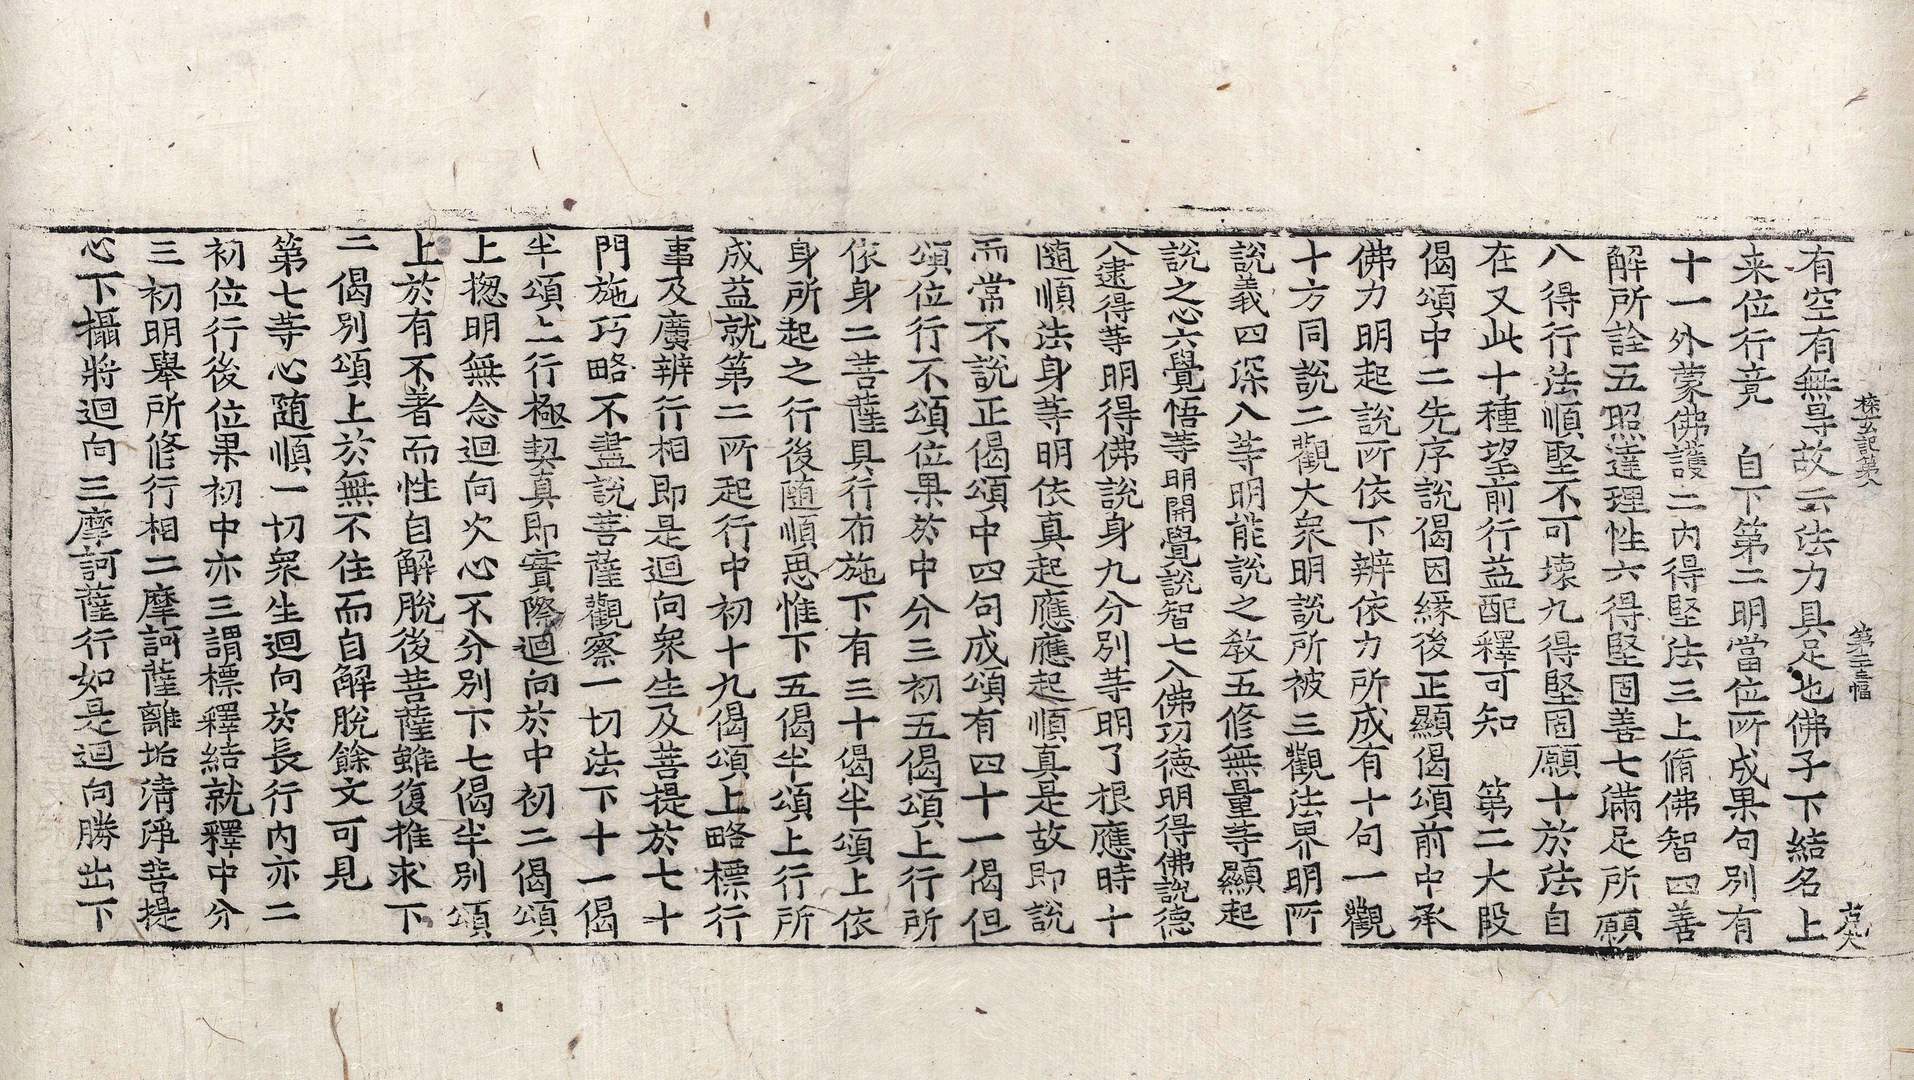 探玄記第八　第三十三幅　荒大
有空有無㝵故云法力具足也佛子下結名上
来位行竟　自下第二明當位所成果句別有
十一外蒙佛護二內得堅法三上脩佛智四善
解所詮五照達理性六得堅固善七滿足所願
八得行法順堅不可壞九得堅固願十於法自
在又此十種望前行益配釋可知　第二大段
偈頌中二先序說偈因緣後正顯偈頌前中承
佛力明起說所依下辨依力所成有十句一觀
十方同說二觀大衆明說所被三觀法界明所
說義四深入等明能說之教五修無量等顯起
說之心六覺悟等明開覺說智七入佛功德明得佛說德
八逮得等明得佛說身九分別等明了根應時十
隨順法身等明依真起應應起順真是故即說
而常不說正偈頌中四句成頌有四十一偈但
頌位行不頌位果於中分三初五偈頌上行所
依身二菩薩具行布施下有三十偈半頌上依
身所起之行後隨順思惟下五偈半頌上行所
成益就第二所起行中初十九偈頌上略標行
事及廣辨行相即是迴向衆生及菩提於七十
門施巧略不盡說菩薩觀察一切法下十一偈
半頌上行極契真即實際迴向於中初二偈頌
上揔明無念迴向次心不分別下七偈半別頌
上於有不著而性自解脫後菩薩雖復推求下
二偈別頌上於無不住而自解脫餘文可見
第七等心隨順一切衆生迴向於長行內亦二
初位行後位果初中亦三謂標釋結就釋中分
三初明舉所修行相二摩訶薩離垢清淨菩提
心下攝將迴向三摩訶薩行如是迴向勝出下